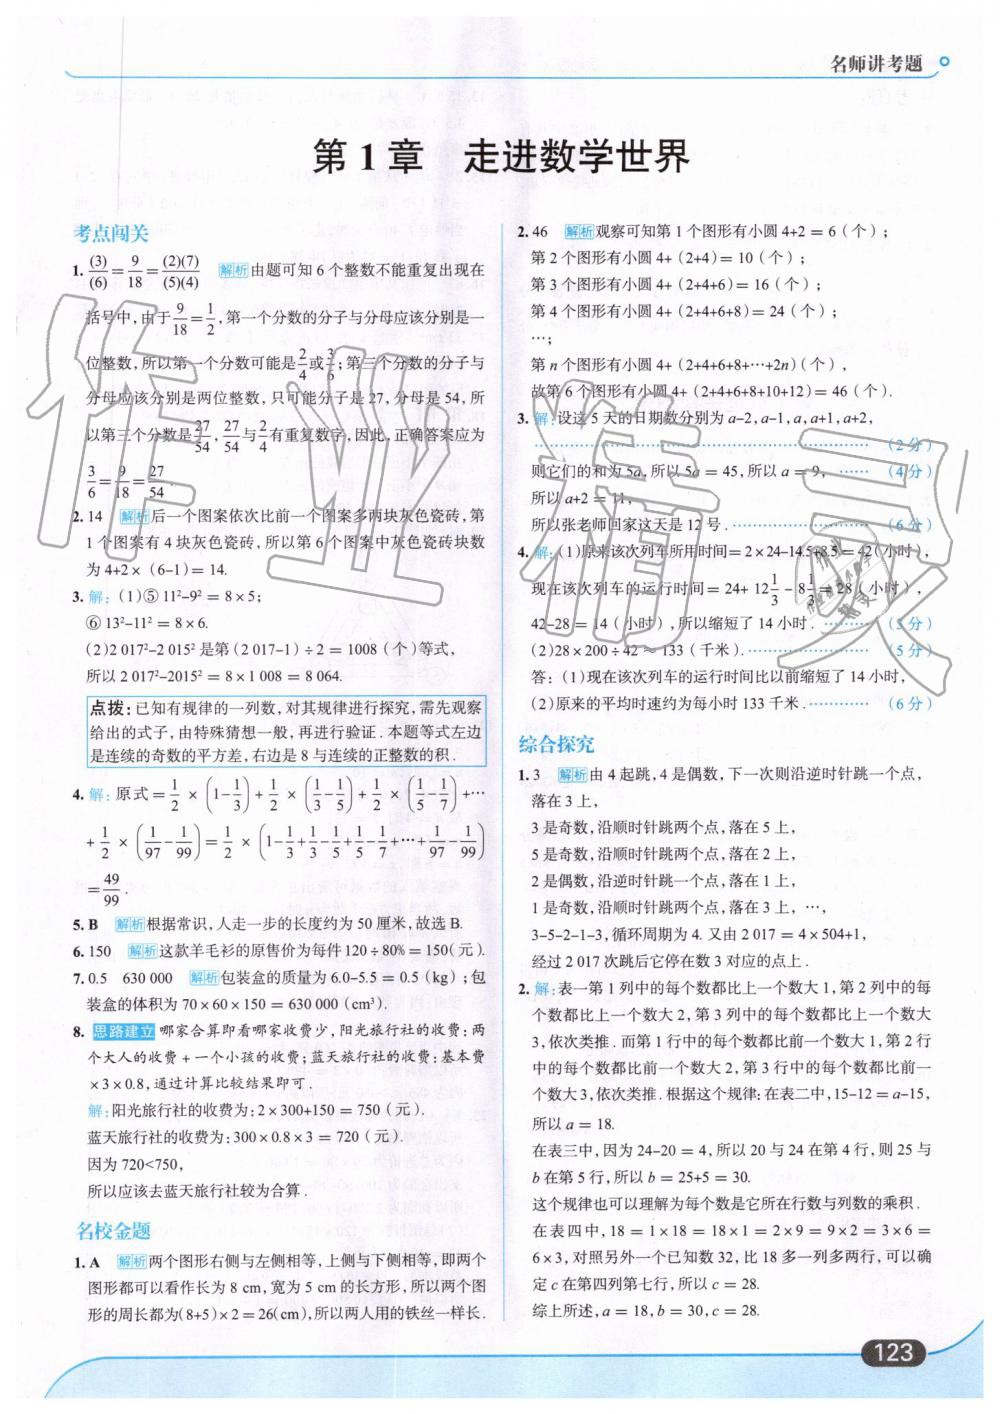 名师讲考题
第1章 走进数学世界
考点闯关
1. (3)/(6) = 9/18 = (2)(7)/(5)(4) 解析 由题可知6个整数不能重复出现在
括号中,由于9/18=1/2,第一个分数的分子与分母应该分别是一
位整数,所以第一个分数可能是2/4或3/6;第三个分数的分子与
分母应该分别是两位整数,只可能分子是27,分母是54,所
以第三个分数是27/54,27/54与2/4有重复数字,因此,正确答案应为
3/6=9/18=27/54.
2. 14 解析 后一个图案依次比前一个图案多两块灰色瓷砖,第
1个图案有4块灰色瓷砖,所以第6个图案中灰色瓷砖块数
为4+2×(6-1)=14.
3. 解:(1)⑤ 11²-9²=8×5;
⑥ 13²-11²=8×6.
(2)2 017²-2 015²是第(2 017-1)÷2=1008(个)等式,
所以2 017²-2015²=8×1 008=8 064.
点拨:已知有规律的一列数,对其规律进行探究,需先观察
给出的式子,由特殊猜想一般,再进行验证.本题等式左边
是连续的奇数的平方差,右边是8与连续的正整数的积.
4. 解:原式=1/2×(1-1/3)+1/2×(1/3-1/5)+1/2×(1/5-1/7)+…
+1/2×(1/97-1/99)=1/2×(1-1/3+1/3-1/5+1/5-1/7+…+1/97-1/99)
=49/99.
5. B 解析 根据常识,人走一步的长度约为50厘米,故选B.
6. 150 解析 这款羊毛衫的原售价为每件120÷80%=150(元).
7. 0.5 630 000 解析 包装盒的质量为6.0-5.5=0.5(kg);包
装盒的体积为70×60×150=630 000(cm³).
8. 思路建立 哪家合算即看哪家收费少,阳光旅行社的收费:两
个大人的收费+一个小孩的收费;蓝天旅行社的收费:基本费
×3×0.8,通过计算比较结果即可.
解:阳光旅行社的收费为:2×300+150=750(元).
蓝天旅行社的收费为:300×0.8×3=720(元).
因为720<750,
所以应该去蓝天旅行社较为合算.
名校金题
1. A 解析 两个图形右侧与左侧相等,上侧与下侧相等,即两个
图形都可以看作长为8 cm,宽为5 cm的长方形,所以两个图
形的周长都为(8+5)×2=26(cm),所以两人用的铁丝一样长.
2. 46 解析 观察可知第1个图形有小圆4+2=6(个);
第2个图形有小圆4+(2+4)=10(个);
第3个图形有小圆4+(2+4+6)=16(个);
第4个图形有小圆4+(2+4+6+8)=24(个);
…;
第n个图形有小圆4+(2+4+6+8+…+2n)(个),
故第6个图形有小圆4+(2+4+6+8+10+12)=46(个).
3. 解:设这5天的日期数分别为a-2,a-1,a,a+1,a+2,
(2分)
则它们的和为5a,所以5a=45,所以a=9, …… (4分)
所以a+2=11,
所以张老师回家这天是12号. (6分)
4. 解:(1)原来该次列车所用时间=2×24-14.5+8.5=42(小时),
现在该次列车的运行时间=24+12 1/3-8 1/3=28(小时),
42-28=14(小时),所以缩短了14小时. (3分)
(2)28×200÷42≈133(千米). (5分)
答:(1)现在该次列车的运行时间比以前缩短了14小时,
(2)原来的平均时速约为每小时133千米. (6分)
综合探究
1. 3 解析 由4起跳,4是偶数,下一次则沿逆时针跳一个点,
落在3上,
3是奇数,沿顺时针跳两个点,落在5上,
5是奇数,沿顺时针跳两个点,落在2上,
2是偶数,沿逆时针跳一个点,落在1上,
1是奇数,沿顺时针跳两个点,落在3上,…,
3-5-2-1-3,循环周期为4.又由2 017=4×504+1,
经过2 017次跳后它停在数3对应的点上.
2. 解:表一第1列中的每个数都比上一个数大1,第2列中的每
个数都比上一个数大2,第3列中的每个数都比上一个数大
3,依次类推.而第1行中的每个数都比前一个数大1,第2行
中的每个数都比前一个数大2,第3行中的每个数都比前一
个数大3,依次类推.根据这个规律:在表二中,15-12=a-15,
所以a=18.
在表三中,因为24-20=4,所以20与24在第4行,则25与
b在第5行,所以b=25+5=30.
这个规律也可以理解为每个数是它所在行数与列数的乘积.
在表四中,18=1×18=18×1=2×9=9×2=3×6=
6×3,对照另外一个已知数32,比18多一列多两行,可以确
定c在第四列第七行,所以c=28.
综上所述,a=18,b=30,c=28.
123
作业精灵